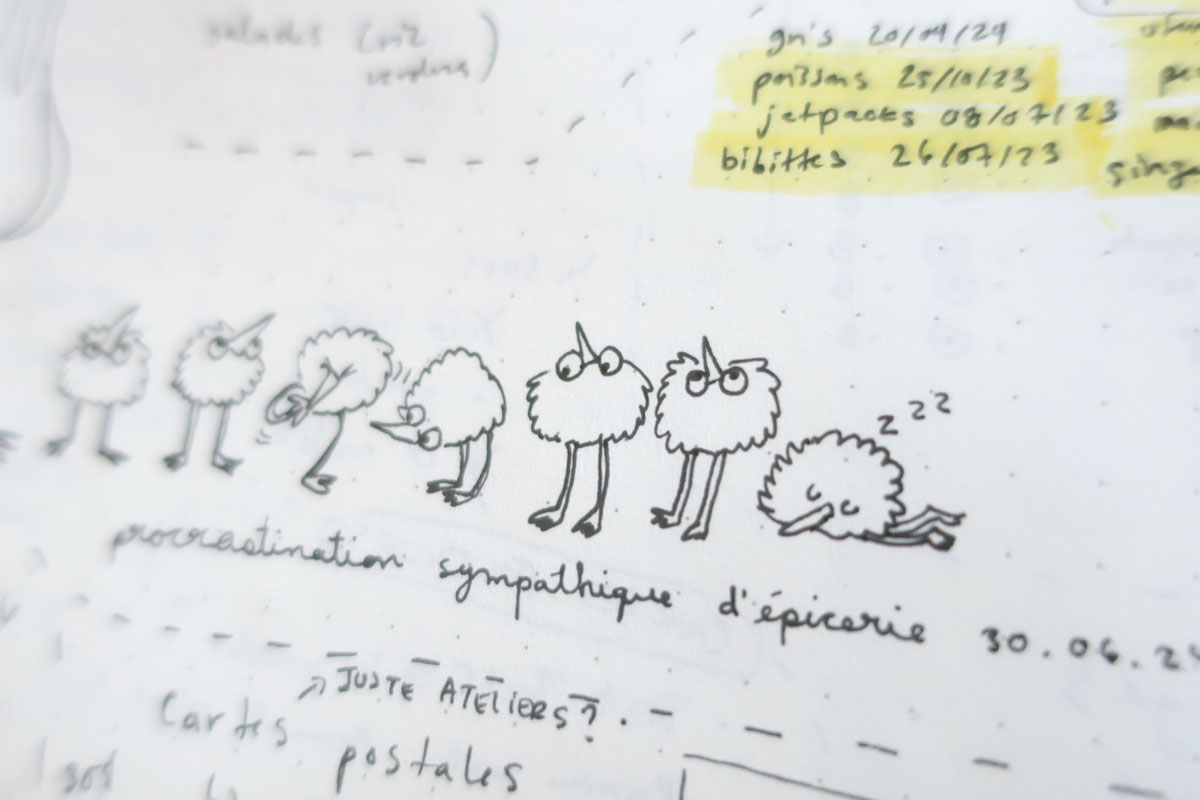 salades (miz
verdure)
gn's 20/04/24
poissons 25/10/23
jetpacks 08/07/23
bibittes 26/07/23
z z z
procrastination sympathique d'épicerie 30.06.24
JUSTE ATELIERS?
Cartes
postales